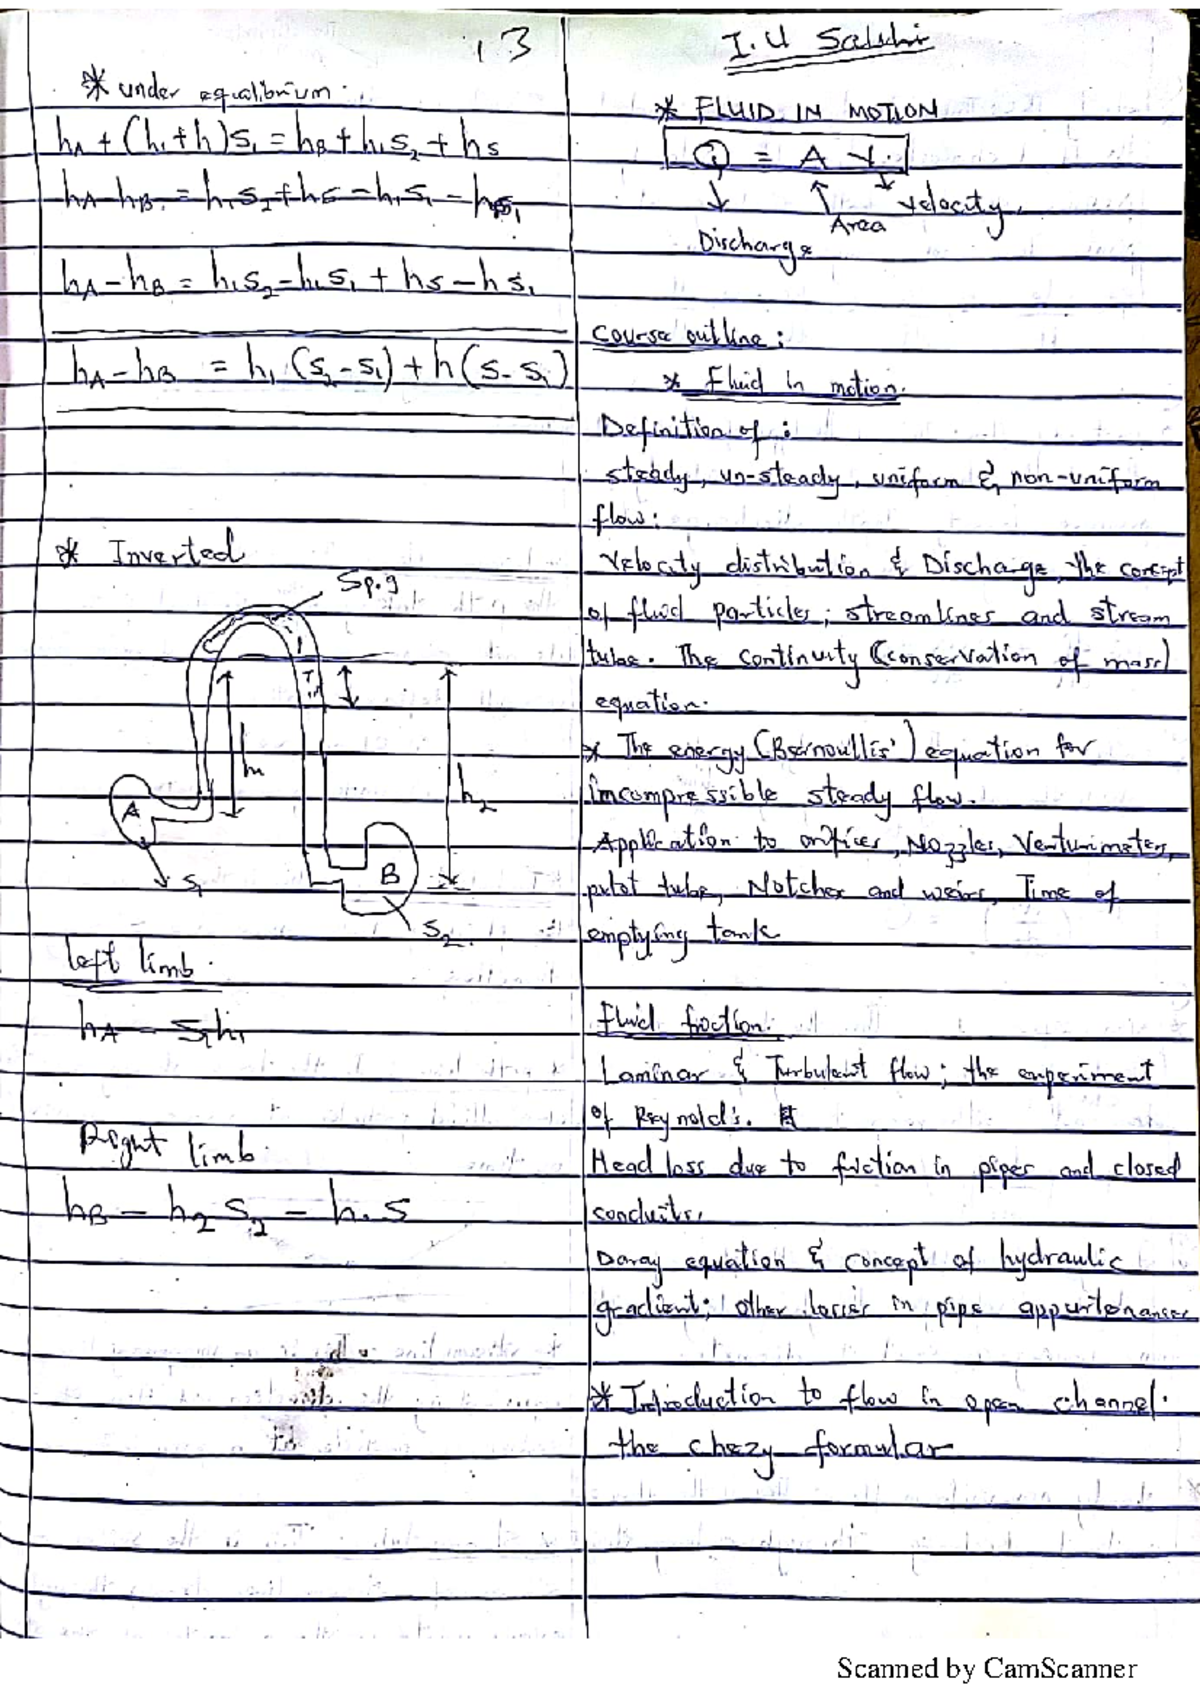 13
* under equalibrium.
hA + (h₁+h)s₁ = hB + h₁s₂ + hs
hA - hB = h₁s₂ + hs - h₁s₁ - hs₁
hA - hB = h₁s₂ - h₁s₁ + hs - hs₁
hA - hB = h₁ (s₂ - s₁) + h (s - s₁)
* Inverted
Sp.g
h₁
h₂
A
B
S₁
S₂
left limb.
hA - S₁h₁
Right limb.
hB - h₂ S₂ - h.s
I.U
* FLUID IN MOTION
Q = A V
Velocity
Area
Discharge
course outline:
* Fluid in motion.
Definition of :
steady, un-steady, uniform & non-uniform
flow:
Velocity distribution & Discharge, the concept
of fluid particles; streamlines and stream
tube. The continuity (conservation of mass)
equation.
* The energy (Bernoullis') equation for
imcompressible steady flow.
Application to orifices, Nozzles, Venturimeters,
pitot tube, Notches and weirs, Time of
emptying tank
Fluid friction.
Laminar & Turbulent flow; the experiment
of Reynold's.
Head loss due to friction in pipes and closed
conduits.
Darcy equation & concept of hydraulic
gradient; other losses in pipe appurtenances
* Introduction to flow in open channel.
the chezy formular
Scanned by CamScanner